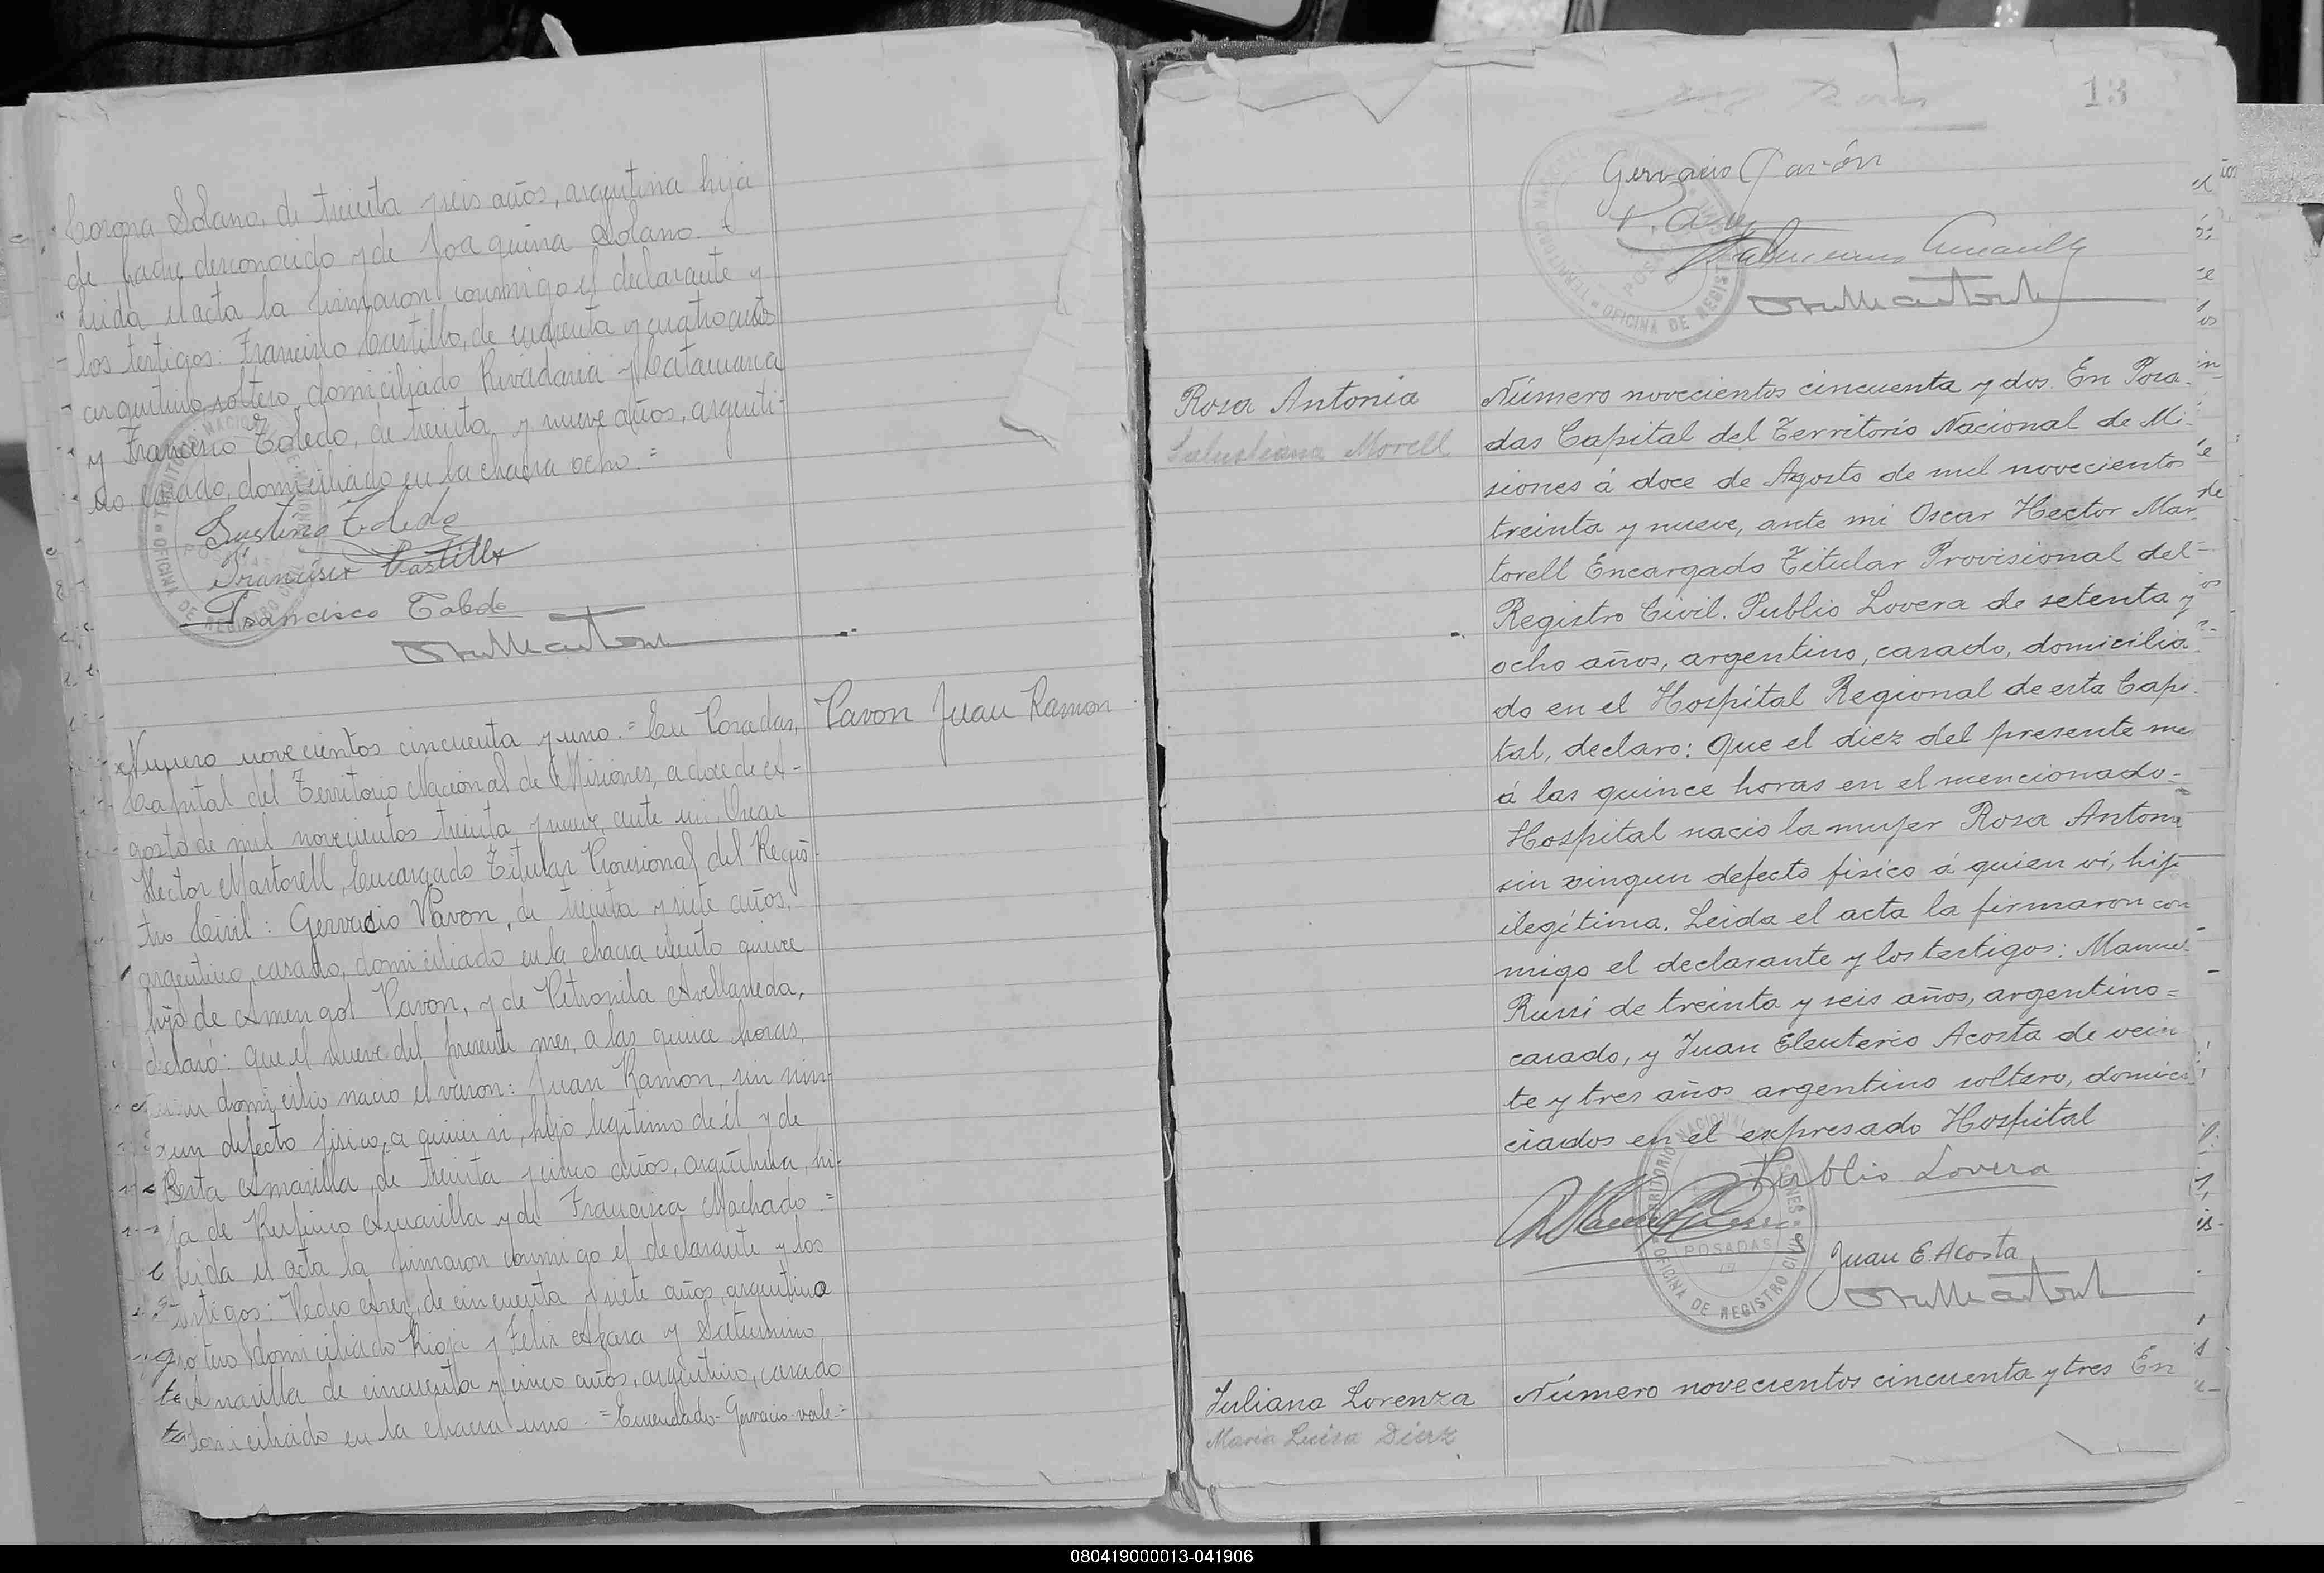 Corona Solano, de treinta y seis años, argentina hija
de padre desconocido y de Joaquina Solano. =
Leida el acta la firmaron conmigo el declarante y
los testigos: Francisco Castillo, de cuarenta y cuatro años
argentino, soltero, domiciliado Rivadavia y Catamarca
y Francisco Toledo, de treinta y nueve años, argenti-
no, casado, domiciliado en la chacra ocho. =
Justino Toledo
Francisco Castillo
Francisco Toledo
Pavon Juan Ramon
Numero novecientos cincuenta y uno. = En Posadas,
Capital del Territorio Nacional de Misiones, a doce de A-
gosto de mil novecientos treinta y nueve, ante mi, Oscar
Hector Martorell, Encargado Titular Provisional del Regis-
tro Civil: Gervacio Pavon, de treinta y siete años,
argentino, casado, domiciliado en la chacra ciento quince
hijo de Amengol Pavon, y de Petronila Avellaneda,
declaró: Que el nueve del presente mes, a las quince horas,
en su domicilio nacio el varon: Juan Ramon, sin nin-
gun defecto fisico, a quien vi, hijo legitimo de él y de
Berta Amarilla, de treinta y cinco años, argentina, hi-
ja de Rufino Amarilla y de Francisca Machado =
Leida el acta la firmaron conmigo el declarante y los
testigos: Pedro de cincuenta y siete años, argentino
soltero, domiciliado Rioja y Felix Azara y Saturnino
Amarilla de cincuenta y cinco años, argentino, casado
domiciliado en la chacra uno. = Enmendado - Gervacio - vale =
13
Gervacio Pavón
Saturnino Amarilla
Rosa Antonia
Salustiana Morell
Número novecientos cincuenta y dos. En Posa-
das Capital del Territorio Nacional de Mi-
siones á doce de Agosto de mil novecientos
treinta y nueve, ante mi Oscar Hector Mar-
torell Encargado Titular Provisional del
Registro Civil. Publio Lovera de setenta y
ocho años, argentino, casado, domicilia-
do en el Hospital Regional de esta Capi-
tal, declaro: Que el diez del presente mes
á las quince horas en el mencionado =
Hospital nacio la mujer Rosa Antonia
sin ningun defecto fisico á quien ví, hija
ilegítima. Leida el acta la firmaron con
migo el declarante y los testigos: Manuel
Russi de treinta y seis años, argentino =
casado, y Juan Eleuterio Acosta de vein
te y tres años argentino soltero, domici
ciados en el expresado Hospital
Publio Lovera
Juan E. Acosta
TERRITORIO NACIONAL DE MISIONES
OFICINA DE REGISTRO CIVIL
POSADAS
Juliana Lorenza
Maria Luisa Diaz
Número novecientos cincuenta y tres En
080419000013-041906